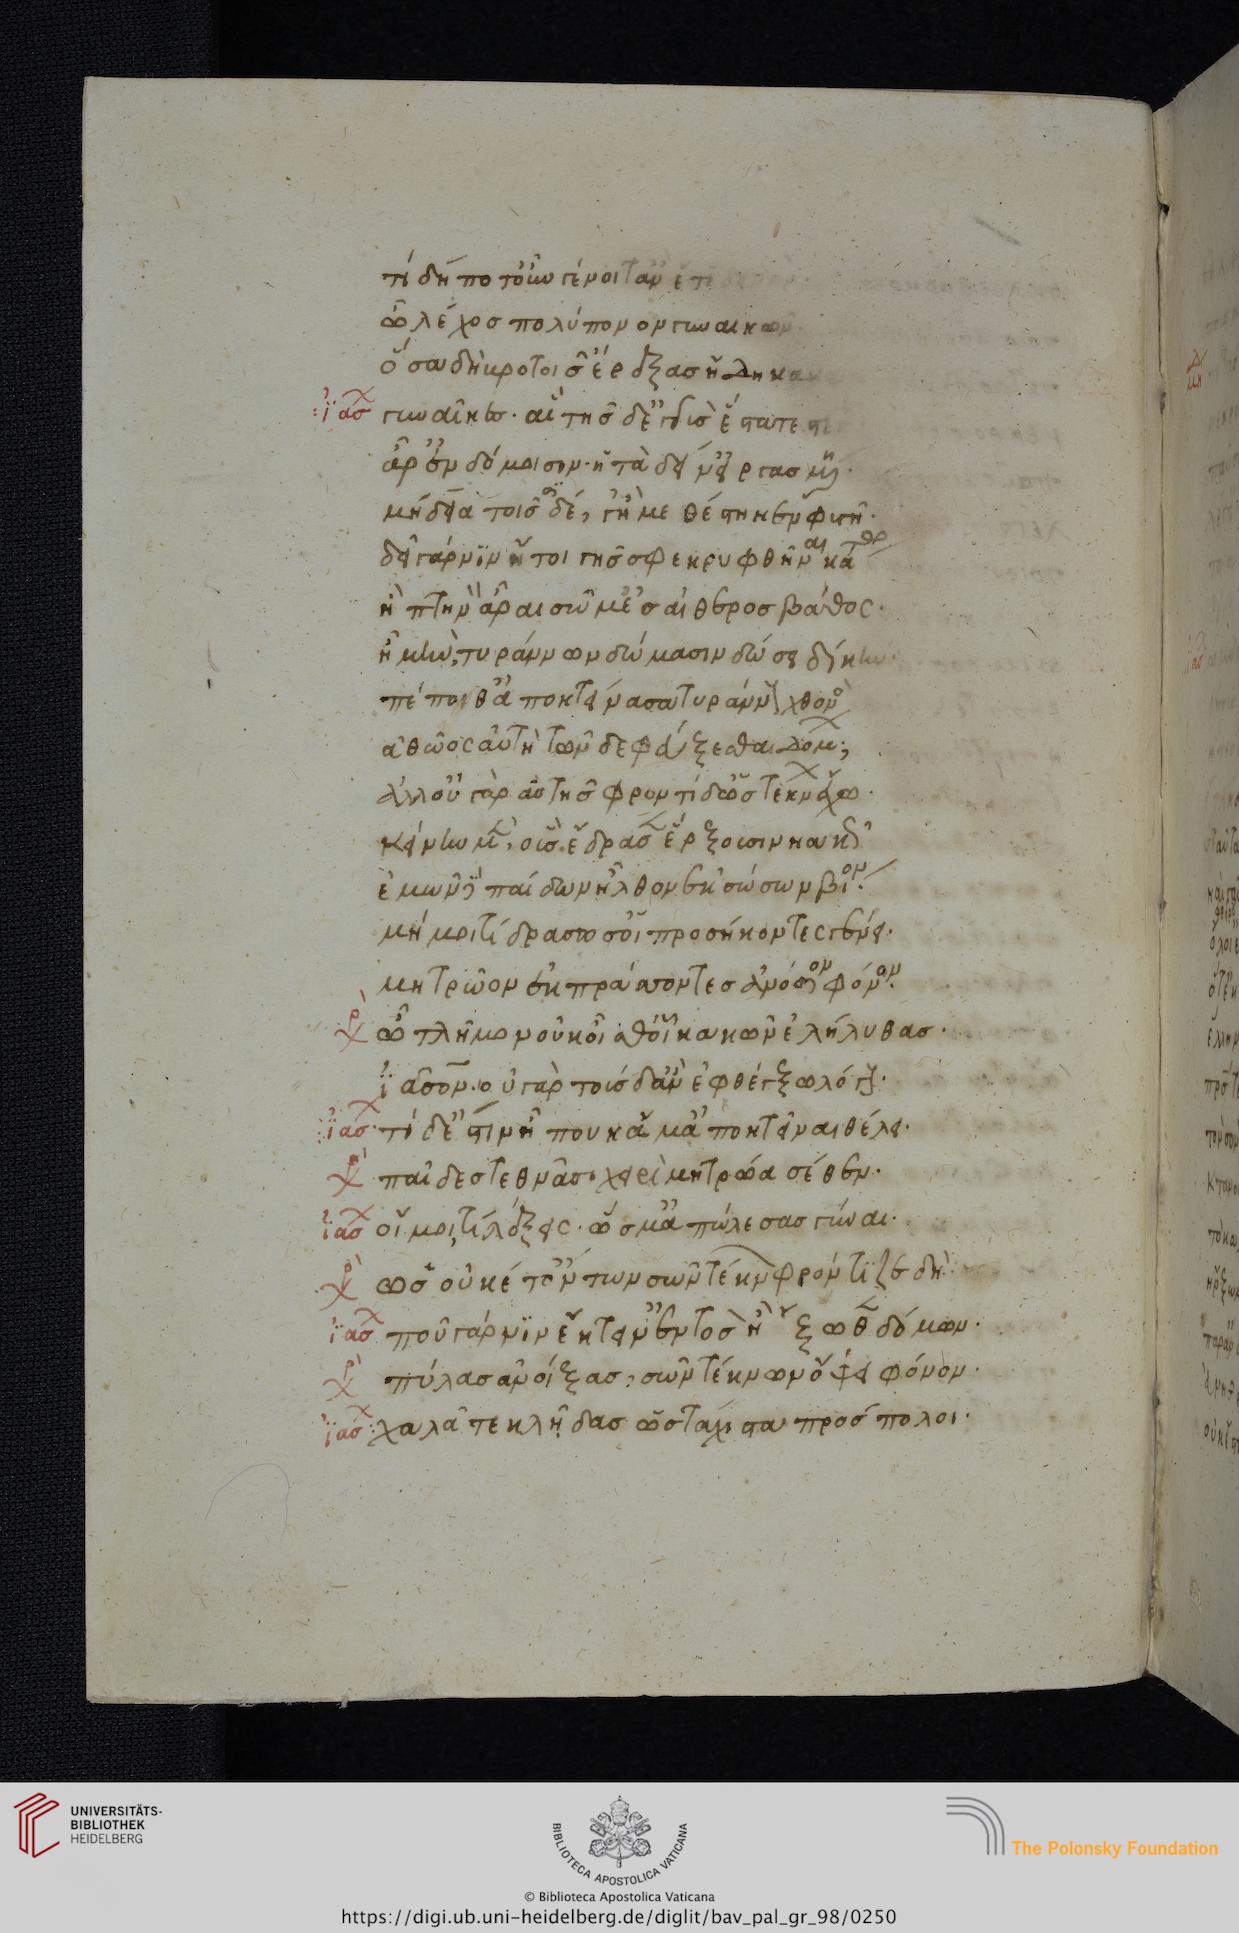 τί δή ποτ' οὖν γένοιτ' ἂν ἔτι
ὦ λέχος πολύπονον γυναικῶν
ὅσα δὴ βροτοῖς ἔρεξας ἤδη κακ
ἰάσ γυναῖκες· αἳ τῆσδ' ἐγγὺς ἕστατε
ἆρ' ἐν δόμοισιν ἡ τὰ δείν' εἰργασμένη·
μήδεια τοῖσδέ, γ' ἢ μεθέστηκεν φυγῆ·
δεῖ γάρ νιν ἤτοι γῆς σφε κρυφθῆναι κάτω
ἢ πτηνὸν ἆραι σῶμ' ἐς αἰθέρος βάθος·
ἢ μὴ, τυράννων δώμασιν δώσει δίκην·
πέποιθ' ἀποκτείνασα τυράννους χθονὸς
ἀθῶος αὐτὴ τῶνδε φεύξεσθαι δόμων;
ἀλλ' οὐ γὰρ αὐτῆς φροντίδ' ὡς τέκνων ἔχω·
κείνην μὲν, οὓς ἔδρασεν ἔρξουσιν κακῶς
ἐμῶν δὲ παίδων ἦλθον ἐκσώσων βίον·
μή μοί τι δράσωσ' οἱ προσήκοντες γένει·
μητρῷον ἐκπράσσοντες ἀνόσιον φόνον·
χορ ὦ τλῆμον οὐκ οἶσθ' οἷ κακῶν ἐλήλυθας·
ἰᾶσον· οὐ γὰρ τοῦσδ' ἂν ἐφθέγξω λόγους·
ἰάσ τί δ' ἔστιν ἦ που κἄμ' ἀποκτεῖναι θέλει·
χορ παῖδες τεθνᾶσι χειρὶ μητρώα σέθεν·
ἰάσ οἴμοι, τί λέξεις· ὥς μ' ἀπώλεσας γύναι·
χορ ὡς οὐκέτ' ὄντων σῶν τέκνων φρόντιζε δὴ·
ἰάσ ποῦ γάρ νιν ἔκτειν' ἐντὸς ἢ 'ξωθεν δόμων·
χορ πύλας ἀνοίξας, σῶν τέκνων ὄψει φόνον·
ἰάσ χαλᾶτε κλῆδας ὡς τάχιστα πρόσπολοι·
UNIVERSITÄTS-
BIBLIOTHEK
HEIDELBERG
BIBLIOTECA APOSTOLICA VATICANA
The Polonsky Foundation
© Biblioteca Apostolica Vaticana
https://digi.ub.uni-heidelberg.de/diglit/bav_pal_gr_98/0250